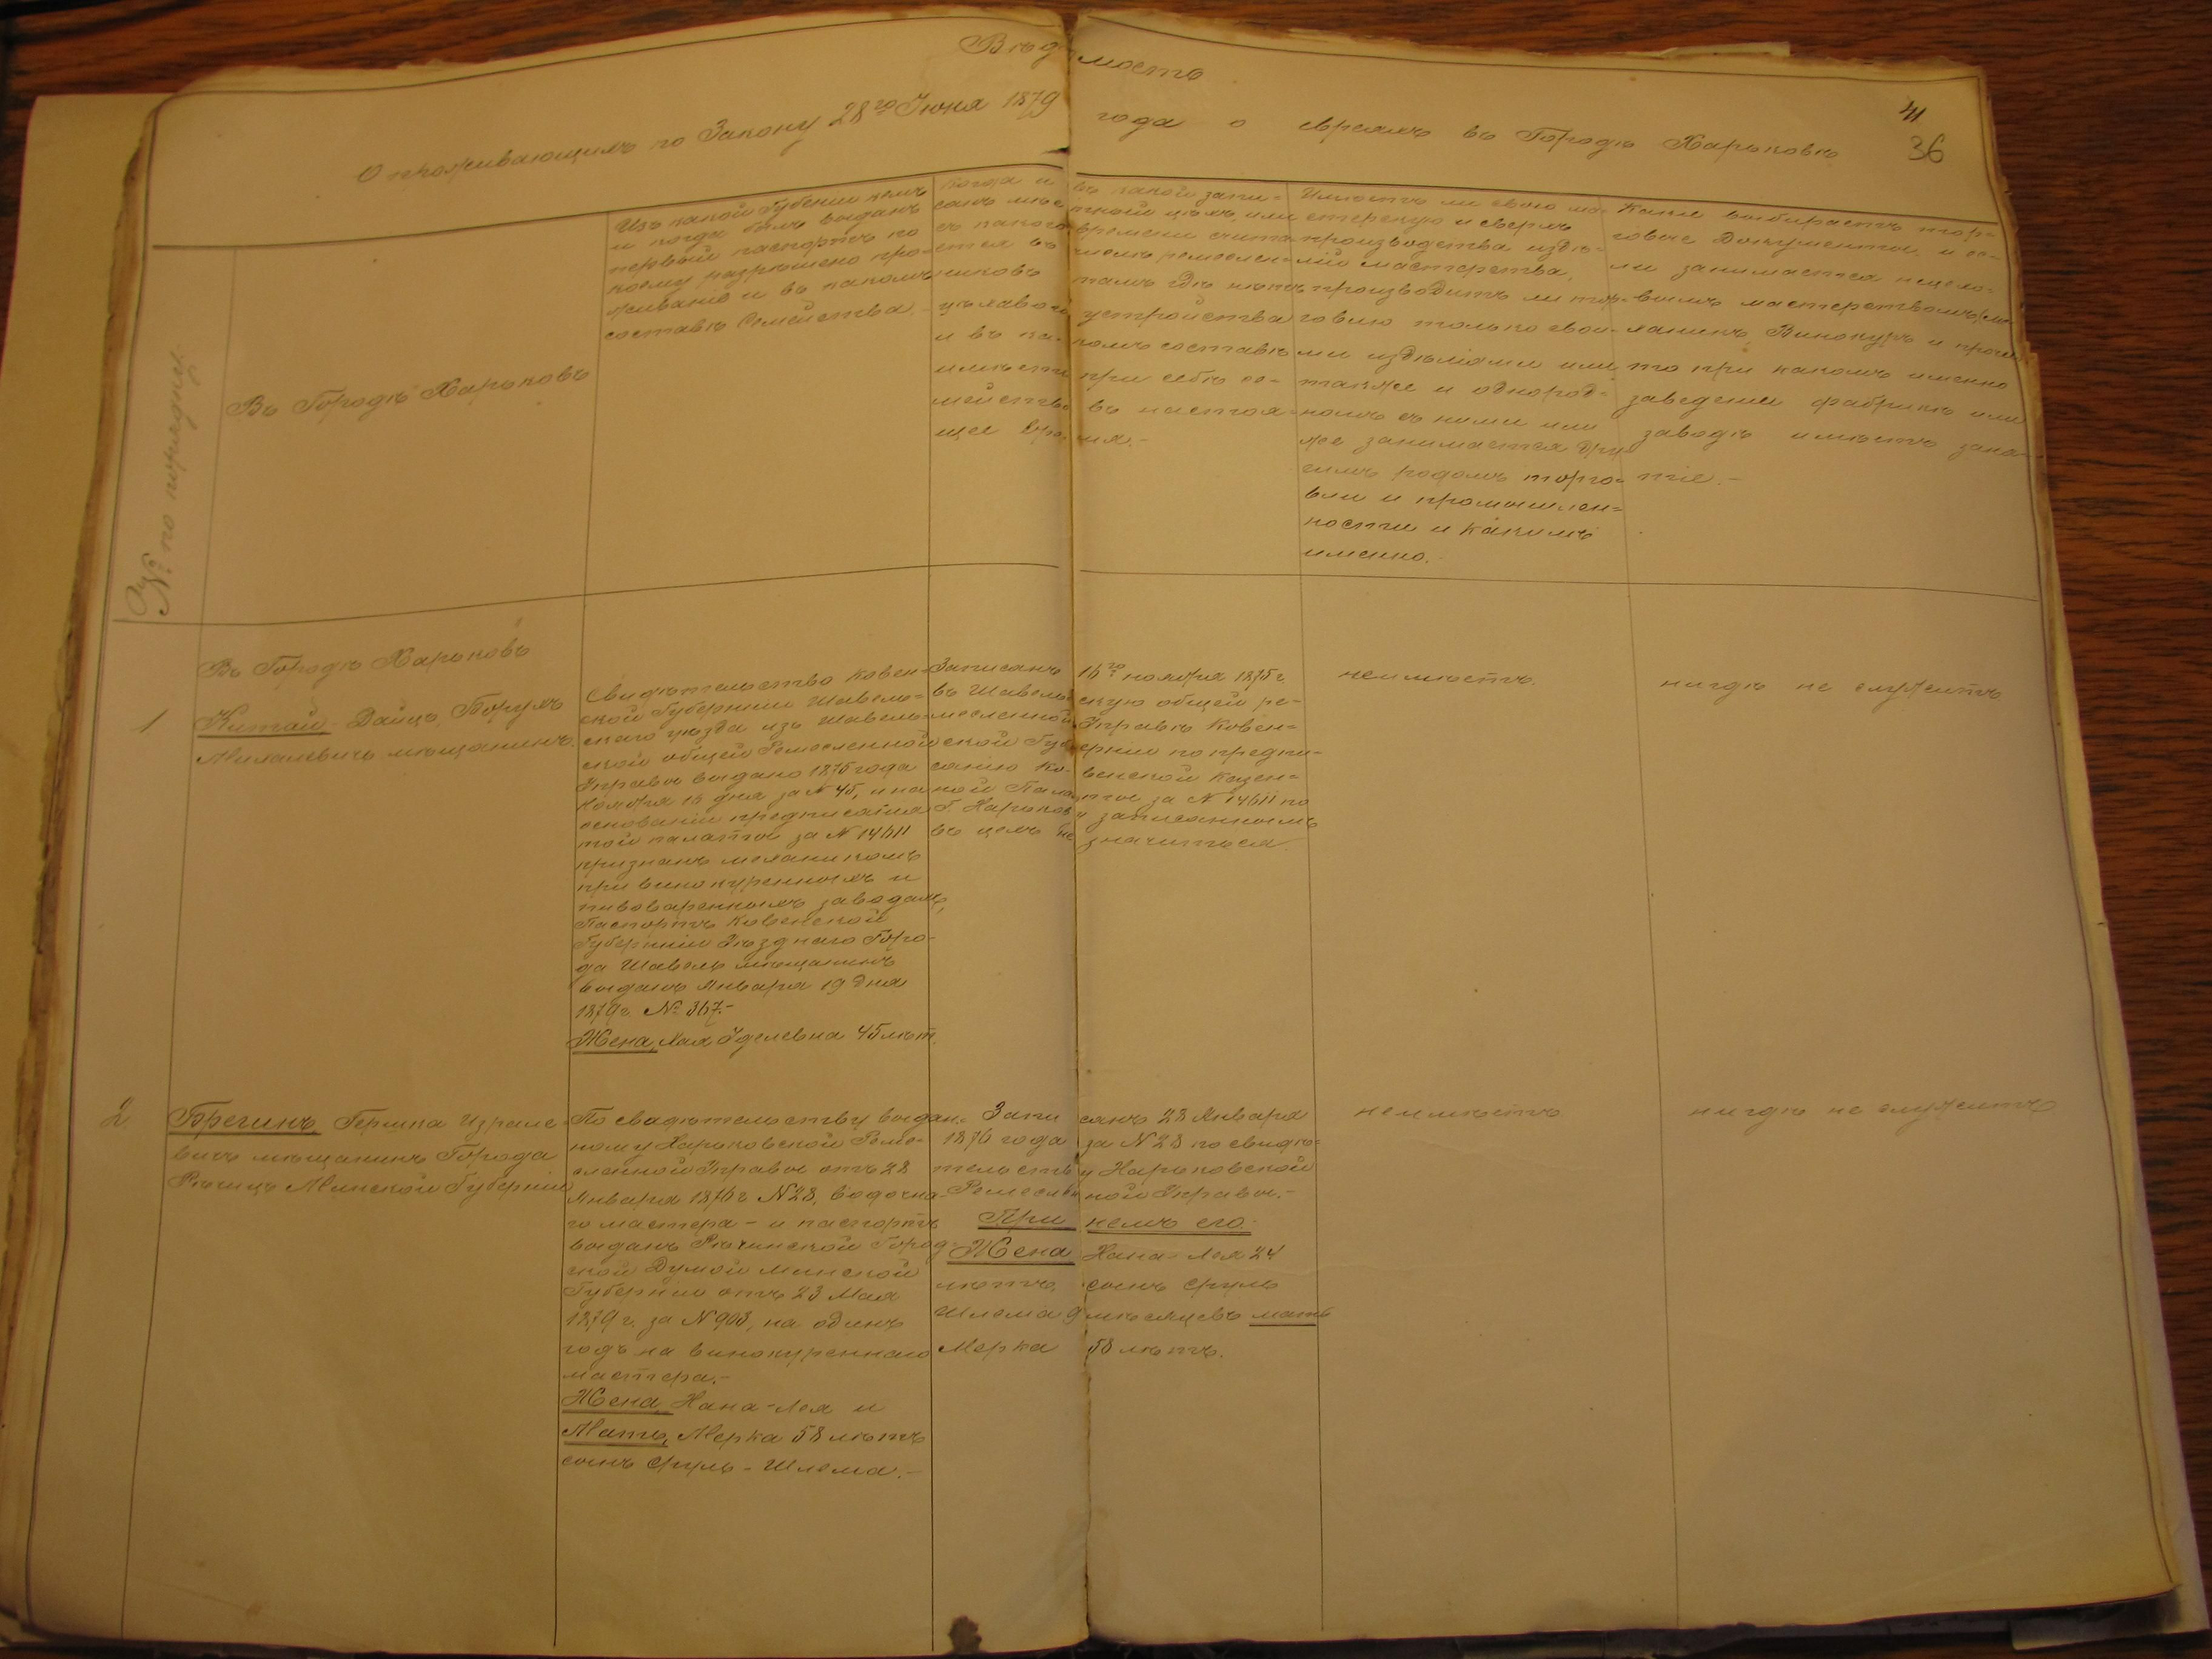 Вѣдомость
О проживающимъ по Закону 28го Іюня 1879 года о евреямъ въ Городѣ Харьковѣ
41
36
№ по порядку
Въ Городѣ Харьковѣ
Изъ какой Губерніи кемъ
и когда былъ выданъ
первый паспортъ по
коему разрѣшено про-
живаніе и въ какомъ
составѣ Семейства.-
когда и въ какой запи-
санъ мѣстной цехъ или
съ какого времени счита-
ется въ чемъ ремеслен-
никовъ тамъ гдѣ нѣтъ
цеховаго устройства
и въ ка- комъ составѣ
имѣетъ при себѣ се-
мейство въ настоя-
щее время.-
Имѣетъ ли свою ма-
стерскую и сверхъ
производства издѣ-
лій мастерства,
производитъ ли тор-
говлю только свои-
ми издѣліями или
также и однород-
нымъ съ ними или
же занимается дру-
гимъ родомъ торго-
вли и промышлен-
ности и какимъ
именно.-
Какіе выбираетъ тор-
говые Документы и ес-
ли занимается нецехо-
вымъ мастерствомъ, ме-
ханикъ, Винокуръ и проч.
то при какомъ именно
заведеніи фабрикѣ или
заводѣ имѣетъ заня-
тіе.-
Въ Городѣ Харьковѣ
1
Китай-Дайцъ, Борухъ
Михалевичъ мѣщанинъ.
Свидѣтельство Ковен-
ской Губерніи Шавель-
скаго уѣзда изъ Шавель-
ской общей Ремесленной
Управы выдано 1875 года
Ноября 16 дня за № 45, и на
основаніи предписанія
той палаты за № 14611
признанъ механикомъ
при винокуренныхъ и
пивоваренныхъ заводахъ,
Паспортъ Ковенской
Губерніи Уѣзднаго Горо-
да Шавель мѣщанинъ
выданъ Января 19 дня
1879 г. № 367.-
Жена, Хая Уделевна 45 лѣт.
Записанъ 16го ноября 1875 г
въ Шавельскую общей ре-
месленной Управѣ Ковен-
ской Губерніи по предпи-
санію Ковенской Казен-
ной Палаты за № 14611 по
Г. Харькову записаннымъ
въ цехъ не значиться.
неимѣетъ.
нигдѣ не служитъ
2
Брегинъ Гершка Израле-
вичъ мѣщанинъ Города
Рѣчицъ Минской Губерніи
По свидѣтельству выдан-
ному Харьковской Реме-
сленной Управы отъ 28
Января 1876 г № 28, водочна-
го мастера - и паспортъ
выданъ Рѣчинской Город-
ской Думой Минской
Губерніи отъ 23 Мая
1879 г. за № 903, на одинъ
годъ на винокуреннаго
мастера.-
Жена Хана-Лея и
Мать, Мерка 58 лѣтъ
сынъ Сруль-Шлема.-
Записанъ 28 Января
1876 года за № 28 по свидѣ-
тельству Харьковской
Ремесленной Управы.-
При немъ его.
Жена Хана Лея 24
лѣтъ, сынъ Сруль
Шлема 9 мѣсяцевъ мать
Мерка 58 лѣтъ.
неимѣетъ
нигдѣ не служитъ